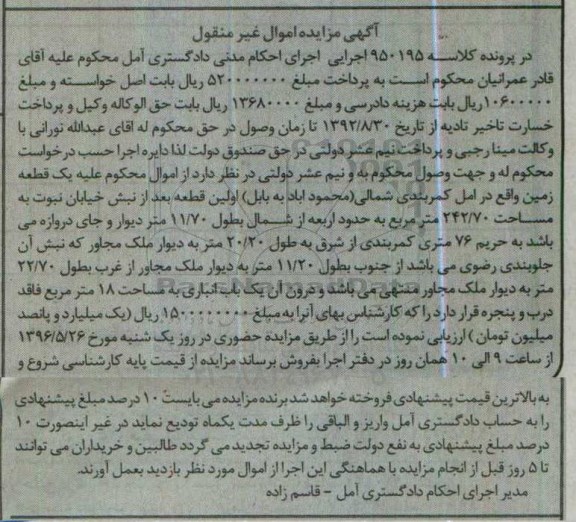 آگهی مزایده اموال غیر منقول
در پرونده کلاسه ۹۵۰۱۹۵ اجرایی اجرای احکام مدنی دادگستری آمل محکوم علیه آقای
قادر عمرانیان محکوم است به پرداخت مبلغ ۵۲۰۰۰۰۰۰۰ ریال بابت اصل خواسته و مبلغ
۱۰۶۰۰۰۰۰ ریال بابت هزینه دادرسی و مبلغ ۱۳۶۸۰۰۰۰ ریال بابت حق الوکاله وکیل و پرداخت
خسارت تاخیر تادیه از تاریخ ۱۳۹۲/۸/۳۰ تا زمان وصول در حق محکوم له آقای عبدالله نورانی با
وکالت مینا رجبی و پرداخت نیم عشر دولتی در حق صندوق دولت لذا دایره اجرا حسب درخواست
محکوم له و جهت وصول محکوم به و نیم عشر دولتی در نظر دارد از اموال محکوم علیه یک قطعه
زمین واقع در امل کمربندی شمالی(محمود اباد به بابل) اولین قطعه بعد از نبش خیابان نبوت به
مساحت ۲۴۲/۷۰ متر مربع به حدود اربعه از شمال بطول ۱۱/۷۰ متر دیوار و جای دروازه می
باشد به حریم ۷۶ متری کمربندی از شرق به طول ۲۰/۲۰ متر به دیوار ملک مجاور که نبش آن
جلوبندی رضوی می باشد از جنوب بطول ۱۱/۲۰ متر به دیوار ملک مجاور از غرب بطول ۲۲/۷۰
متر به دیوار ملک مجاور منتهی می باشد و درون آن یک باب انباری به مساحت ۱۸ متر مربع فاقد
درب و پنجره قرار دارد را که کارشناس بهای آنرا به مبلغ ۱۵۰۰۰۰۰۰۰۰ ریال (یک میلیارد و پانصد
میلیون تومان) ارزیابی نموده است را از طریق مزایده حضوری در روز یک شنبه مورخ ۱۳۹۶/۵/۲۶
از ساعت ۹ الی ۱۰ همان روز در دفتر اجرا بفروش برساند مزایده از قیمت پایه کارشناسی شروع و
به بالاترین قیمت پیشنهادی فروخته خواهد شد برنده مزایده می بایست ۱۰ درصد مبلغ پیشنهادی
را به حساب دادگستری آمل واریز و الباقی را ظرف مدت یکماه تودیع نماید در غیر اینصورت ۱۰
درصد مبلغ پیشنهادی به نفع دولت ضبط و مزایده تجدید می گردد طالبین و خریداران می توانند
تا ۵ روز قبل از انجام مزایده با هماهنگی این اجرا از اموال مورد نظر بازدید بعمل آورند.
مدیر اجرای احکام دادگستری آمل - قاسم زاده